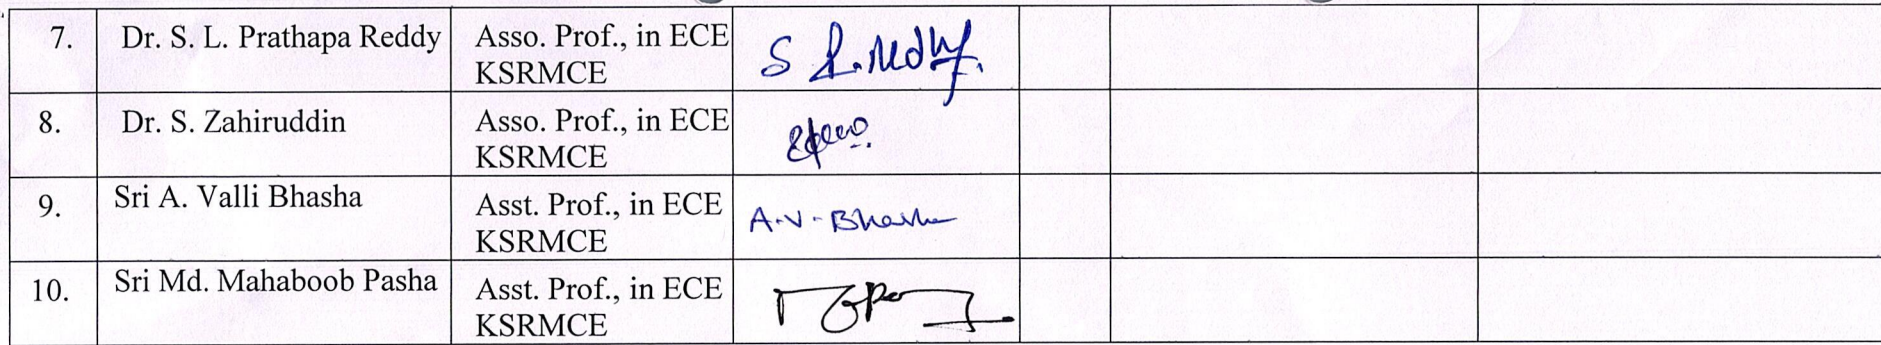 7. Dr. S. L. Prathapa Reddy Asso. Prof., in ECE S L. Reddy.
KSRMCE
8. Dr. S. Zahiruddin Asso. Prof., in ECE
KSRMCE
9. Sri A. Valli Bhasha Asst. Prof., in ECE A.V. Bhasha
KSRMCE
10. Sri Md. Mahaboob Pasha Asst. Prof., in ECE
KSRMCE